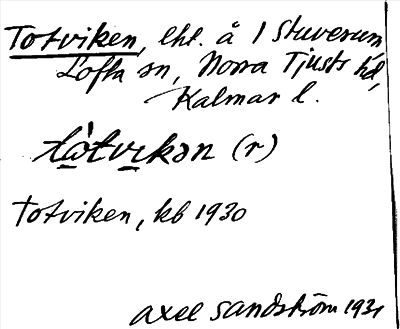 Totviken, lht. å 1 Stuverum,
Lofta sn, Norra Tjusts hd,
Kalmar l.
tὼtvikən (r)
Totviken, kb 1930
Axel Sandström 1931